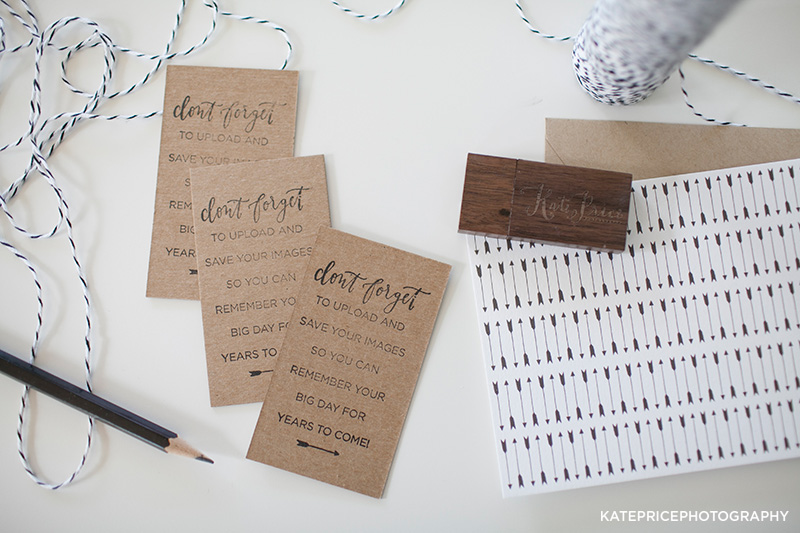 dont forget
TO UPLOAD AND
SAVE YOUR IMAGES
REMEMBER
YEARS
dont forget
TO UPLOAD AND
SAVE YOUR IMAGES
SO YOU CAN
REMEMBER YOUR
BIG DAY FOR
YEARS TO
dont forget
TO UPLOAD AND
SAVE YOUR IMAGES
SO YOU CAN
REMEMBER YOUR
BIG DAY FOR
YEARS TO COME!
Kate Price
KATEPRICEPHOTOGRAPHY